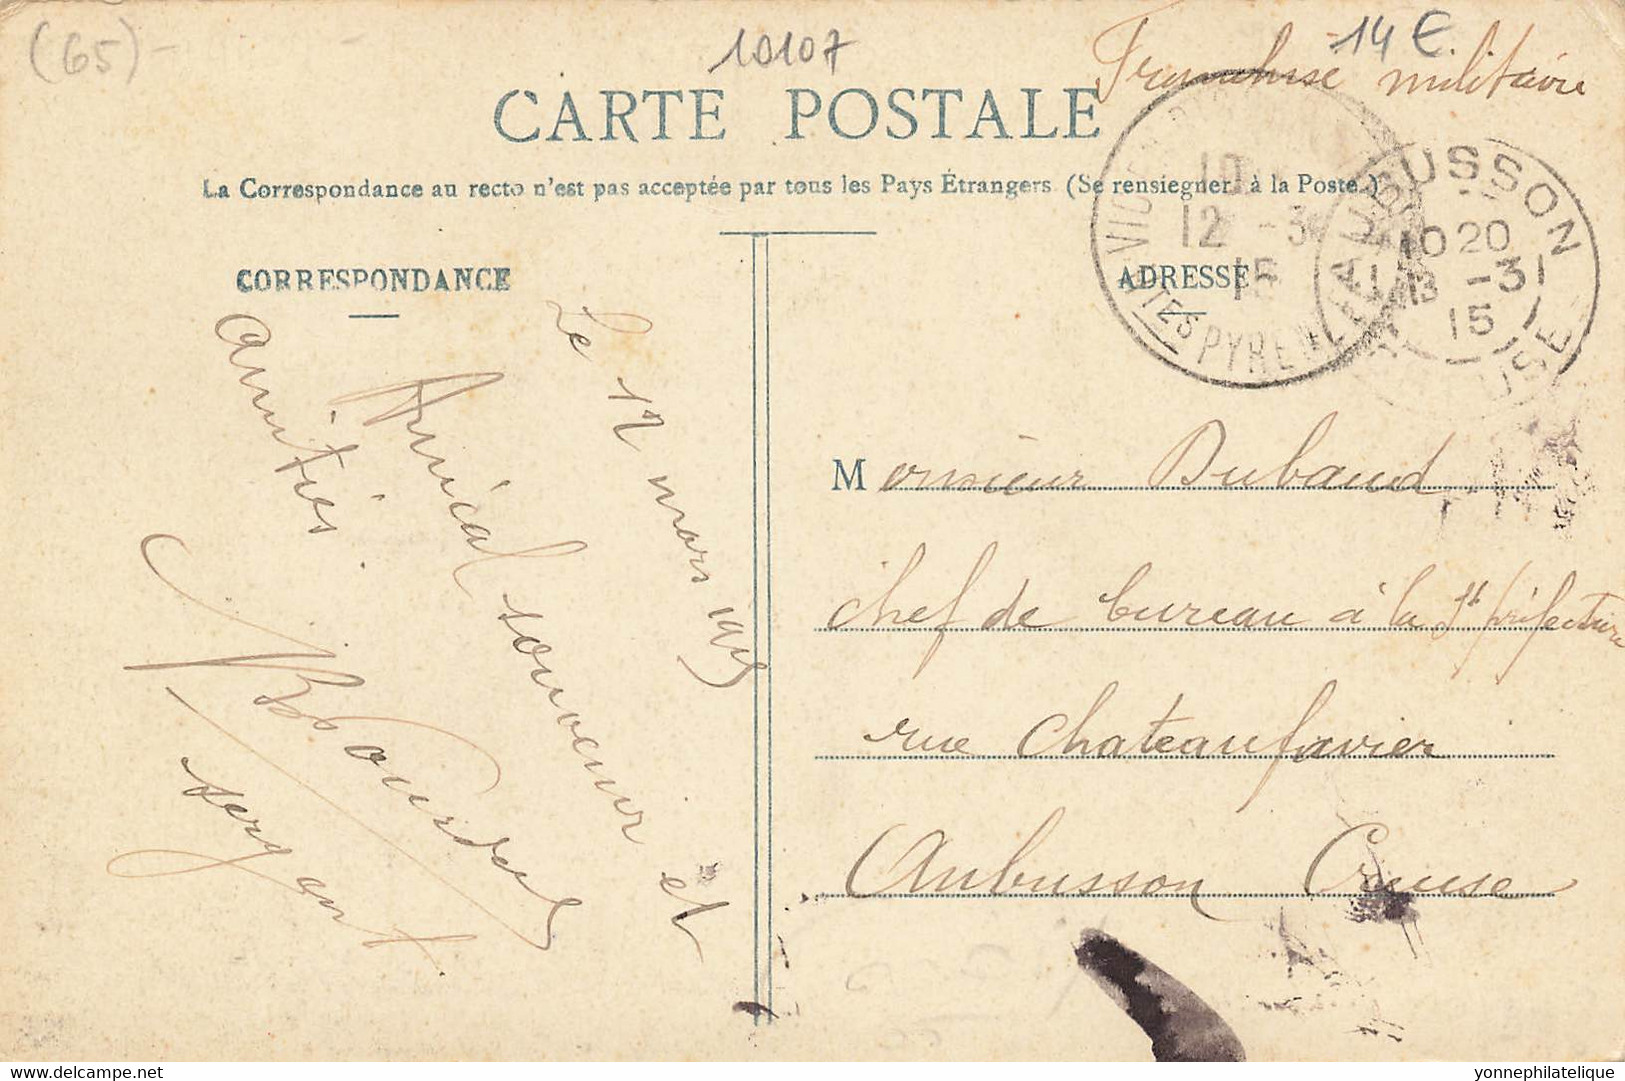 (65)-
10107
14 €.
Franchise militaire
CARTE POSTALE
La Correspondance au recto n'est pas acceptée par tous les Pays Étrangers (Se renseigner à la Poste.)
CORRESPONDANCE
ADRESSE
VIC-EN-BIGORRE
10
12 -3
15
HTES PYRENEES
AUBUSSON
10 20
13 -3
15
CREUSE
Le 12 mars 1915
Amical souvenir et
Amitiés.
sergent
Monsieur Dubaud
chef de bureau à la St préfecture
rue Chateaufavier
Aubusson Creuse
delcampe.net
yonnephilatelique